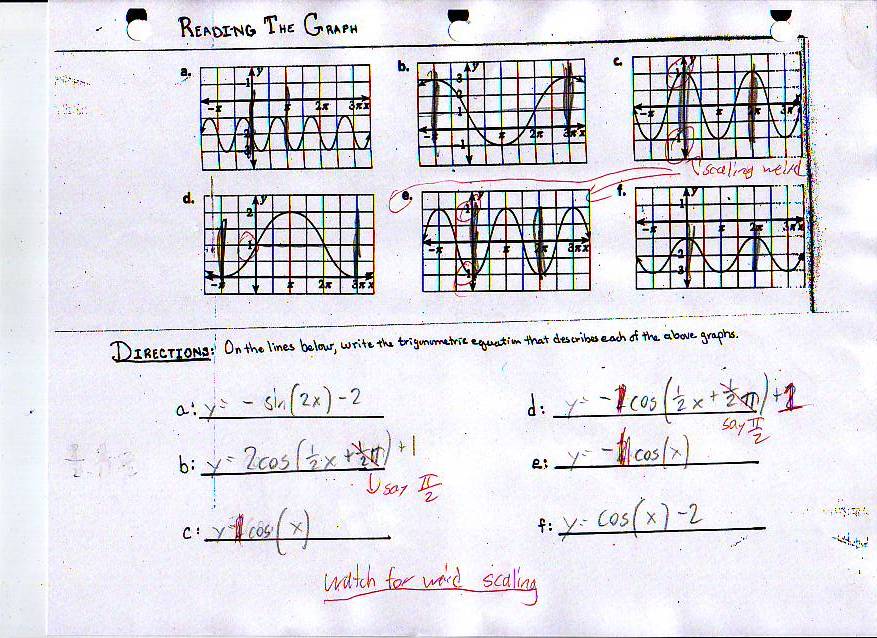 READING THE GRAPH
a. b. c.
y 1 -π π 2π 3π x
y 3 2 1 -π π 2π 3π x -1
y 1 -π π 3π x -1
scaling weird
d. e. f.
y 2 1 -π π 2π 3π x
y 1 -π π 2π 3π x -1
y 1 -π π 2π 3π x -2 -3
DIRECTIONS: On the lines below, write the trigonometric equation that describes each of the above graphs.
a: y = - sin(2x) - 2
d: y = -1cos(½x + ½π) + 1
say π/2
b: y = 2cos(½x + ½π) + 1
say π/2
e: y = -1cos(x)
c: y = 1cos(x)
f: y = cos(x) - 2
watch for weird scaling